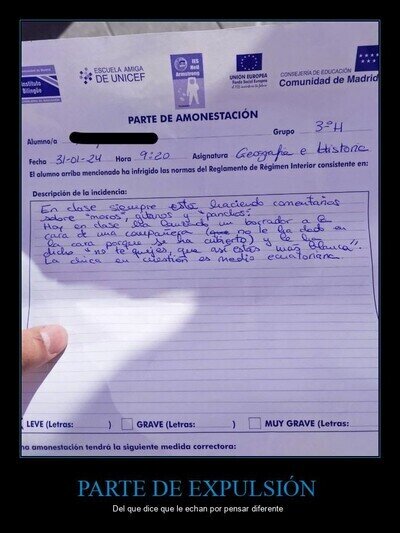 ESCUELA AMIGA
DE UNICEF
IES
Neil
Armstrong
UNIÓN EUROPEA
Fondo Social Europeo
CONSEJERÍA DE EDUCACIÓN
Comunidad de Madrid
PARTE DE AMONESTACIÓN
Alumno/a
Grupo 3ºH
Fecha 31-01-24 Hora 9:20 Asignatura Geografía e Historia
El alumno arriba mencionado ha infrigido las normas del Reglamento de Régimen Interior consistente en:
Descripción de la incidencia:
En clase siempre está haciendo comentarios
sobre "moros", gitanos y "panchos".
Hoy en clase ha lanzado un borrador a la
cara de una compañera (no le ha dado en
la cara porque se ha cubierto) y le ha
dicho "no te quejes, que así estás más blanca".
La chica en cuestión es medio ecuatoriana.
LEVE (Letras: ) GRAVE (Letras: ) MUY GRAVE (Letras:
na amonestación tendrá la siguiente medida correctora:
PARTE DE EXPULSIÓN
Del que dice que le echan por pensar diferente